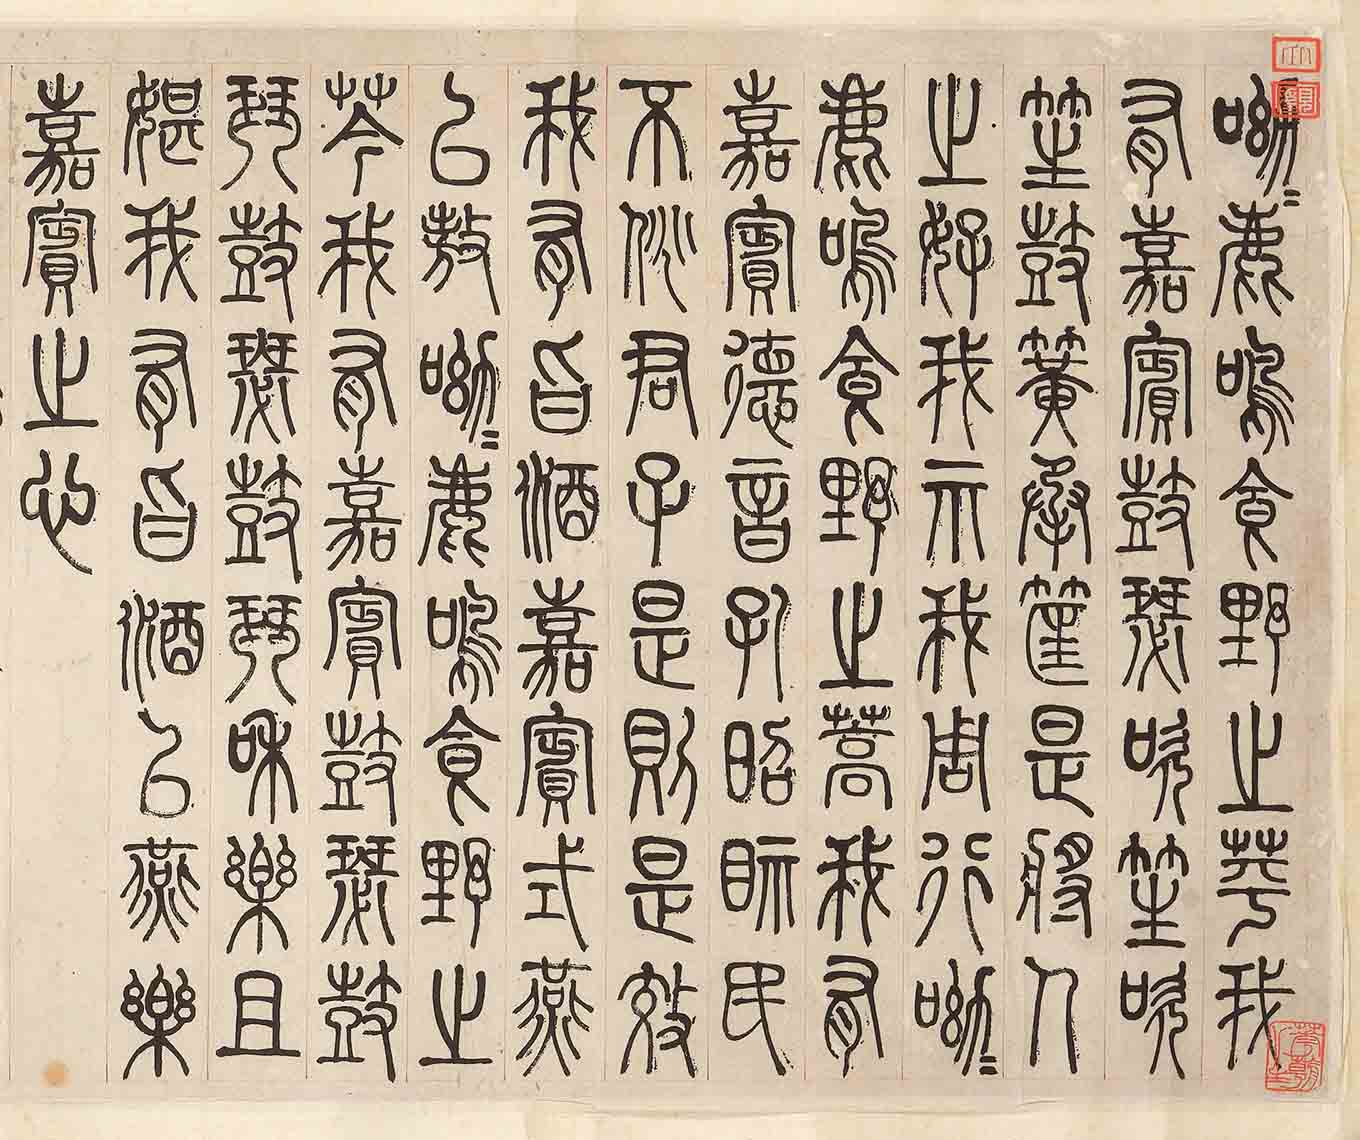 呦〻鹿鳴食野之苹我
有嘉賓鼓瑟吹笙吹
笙鼓簧承筐是將人
之好我示我周行呦〻
鹿鳴食野之蒿我有
嘉賓德音孔昭眎民
不佻君子是則是效
我有旨酒嘉賓式燕
以敖呦〻鹿鳴食野之
芩我有嘉賓鼓瑟鼓
琴鼓瑟鼓琴和樂且
媅我有旨酒以燕樂
嘉賓之心